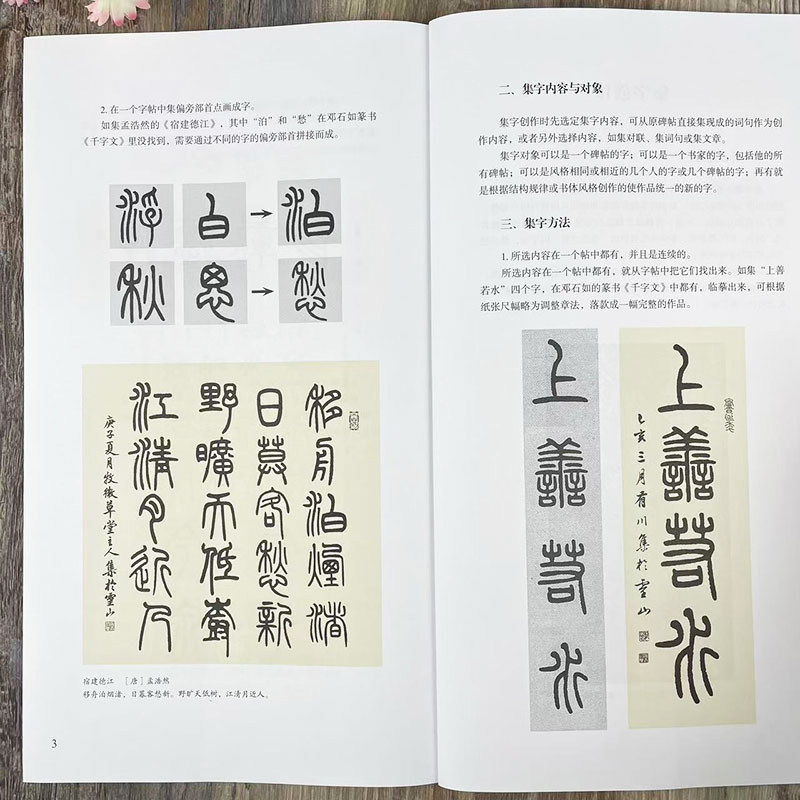 2. 在一个字帖中集偏旁部首点画成字。
如集孟浩然的《宿建德江》，其中“泊”和“愁”在邓石如篆书
《千字文》里没找到，需要通过不同的字的偏旁部首拼接而成。
浮 白 → 泊
秋 思 → 愁
移舟泊煙渚
日暮客愁新
野曠天低樹
江清月近人
庚子夏月牧草堂主人集於靈山
宿建德江 ［唐］孟浩然
移舟泊烟渚，日暮客愁新。野旷天低树，江清月近人。
3
二、集字内容与对象
集字创作时先选定集字内容，可从原碑帖直接集现成的词句作为创
作内容，或者另外选择内容，如集对联、集词句或集文章。
集字对象可以是一个碑帖的字；可以是一个书家的字，包括他的所
有碑帖；可以是风格相同或相近的几个人的字或几个碑帖的字；再有就
是根据结构规律或书体风格创作的使作品统一的新的字。
三、集字方法
1. 所选内容在一个帖中都有，并且是连续的。
所选内容在一个帖中都有，就从字帖中把它们找出来。如集“上善
若水”四个字，在邓石如的篆书《千字文》中都有，临摹出来，可根据
纸张尺幅略为调整章法，落款成一幅完整的作品。
上善若水
上善若水
亥三月川集於靈山